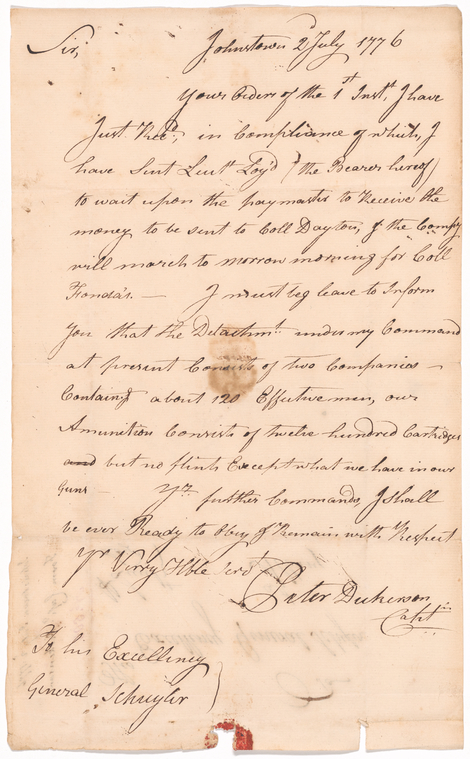 Sir, Johnstown 2d July 1776
Your Orders of the 1st Inst, I have
Just Recd, in Compliance of which, I
have Sent Lut Loyd (the Bearer hereof)
to wait upon the paymaster to Receive the
money to be sent to Coll Dayton, & the Compy
will march to morrow morning for Coll
Fonda's. — I must beg leave to Inform
You that the Detachmt under my Command
at present Consists of two Companies —
Containg about 120 Effective men, our
Amunition Consists of twelve hundred Cartridges
and but no flints Except what we have in our
Guns — Yr further Commands, I shall
be ever Ready to Obey & Remain with Respect
Yr Verry Hble Servt
Peter Dickerson
Captn
To his Excellency
General Schuyler